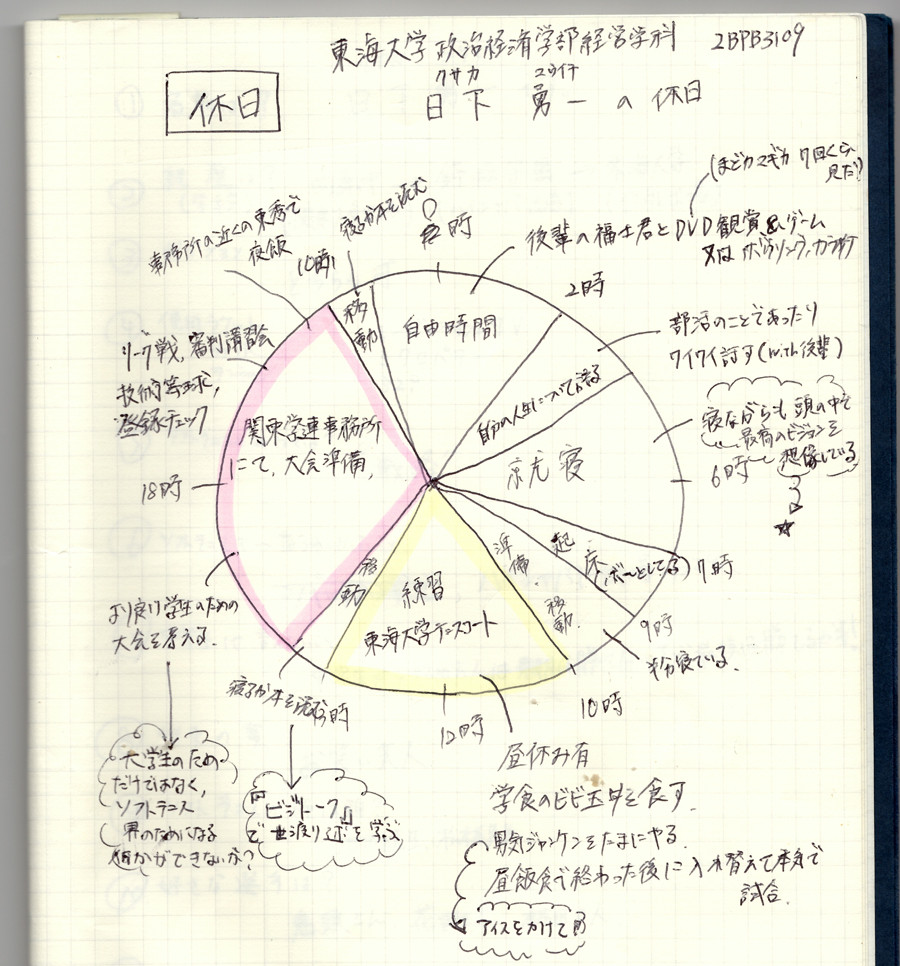 東海大学 政治経済学部経営学科 2BPB3109
休日
クサカ ユウイチ
日下 勇一 の 休日
(まどかマギカ 7回くらい
見た!)
後輩の福士君とDVD観賞&ゲーム
又は ボウリング、カラオケ
寝るか本を読む
0時
事務所の近くの東秀で
夜飯
10時
2時
移動
自由時間
部活のことであったり
ワイワイ話す(with後輩)
自分の人生について語る
リーグ戦、審判講習会
技術等級,
登録チェック
関東学連事務所
にて、大会準備,
寝ながらも頭の中で
最高のビジョンを
想像している
就寝
6時
18時
起床(ボーっとしてる)
7時
準備
移動
9時
半分寝ている.
10時
移動
練習
東海大学テニスコート
より良い学生のための
大会を考える.
寝るか本を読む
時
12時
昼休み有
学食のビビ玉丼を食す.
男気ジャンケンをたまにやる.
昼飯食べ終わった後に入れ替えて本気で
試合.
アイスをかけて
大学生のため
だけではなく,
ソフトテニス
界のためになる
何かができないか?
『ビジトーク』
で世渡り術を学ぶ